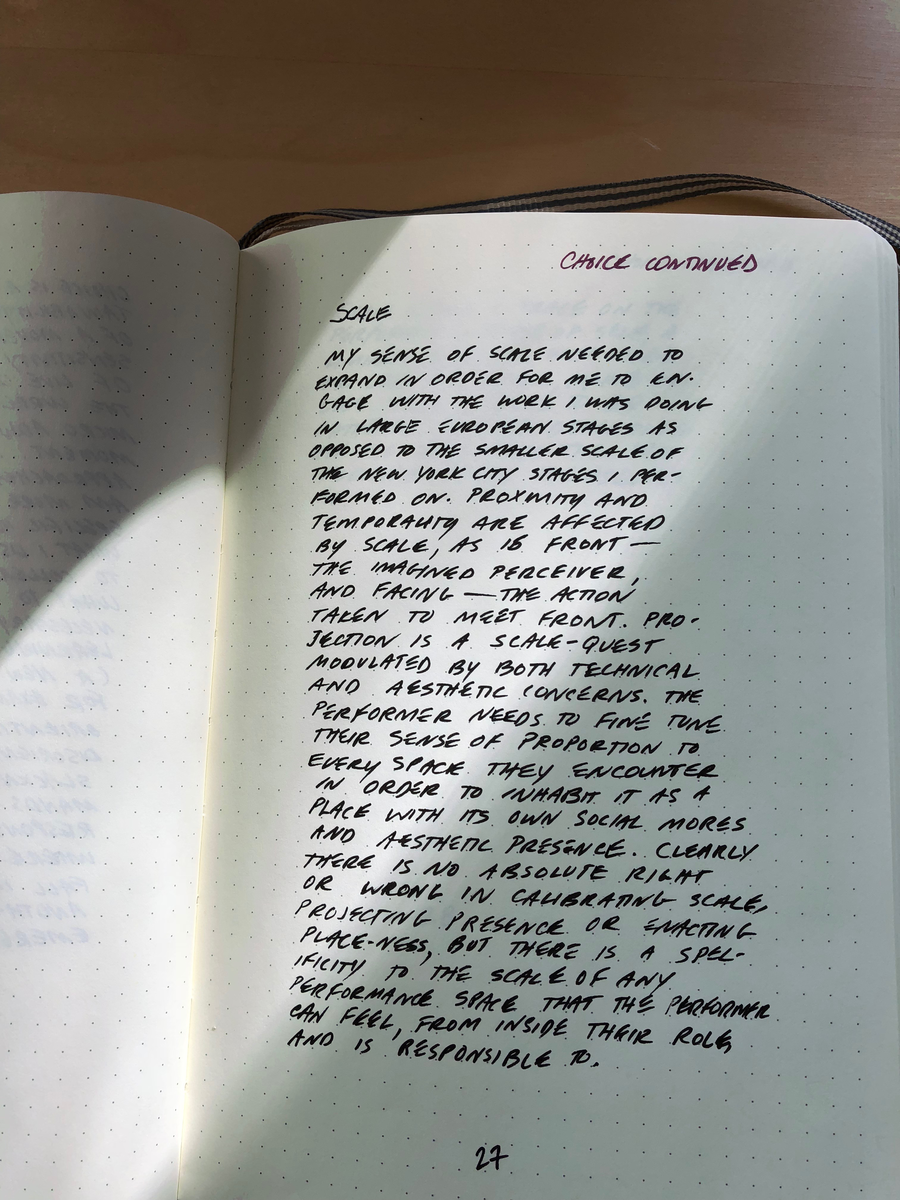 CHOICE CONTINUED
SCALE
MY SENSE OF SCALE NEEDED TO
EXPAND IN ORDER FOR ME TO EN-
GAGE WITH THE WORK I WAS DOING
IN LARGE EUROPEAN STAGES AS
OPPOSED TO THE SMALLER SCALE OF
THE NEW YORK CITY STAGES I PER-
FORMED ON. PROXIMITY AND
TEMPORALITY ARE AFFECTED
BY SCALE, AS IS FRONT —
THE IMAGINED PERCEIVER,
AND FACING — THE ACTION
TAKEN TO MEET FRONT. PRO-
JECTION IS A SCALE-QUEST
MODULATED BY BOTH TECHNICAL
AND AESTHETIC CONCERNS. THE
PERFORMER NEEDS TO FINE TUNE
THEIR SENSE OF PROPORTION TO
EVERY SPACE THEY ENCOUNTER
IN ORDER TO INHABIT IT AS A
PLACE WITH ITS OWN SOCIAL MORES
AND AESTHETIC PRESENCE. CLEARLY
THERE IS NO ABSOLUTE RIGHT
OR WRONG IN CALIBRATING SCALE,
PROJECTING PRESENCE OR ENACTING
PLACE-NESS, BUT THERE IS A SPEC-
IFICITY TO THE SCALE OF ANY
PERFORMANCE SPACE THAT THE PERFORMER
CAN FEEL, FROM INSIDE THEIR ROLE,
AND IS RESPONSIBLE TO.
27